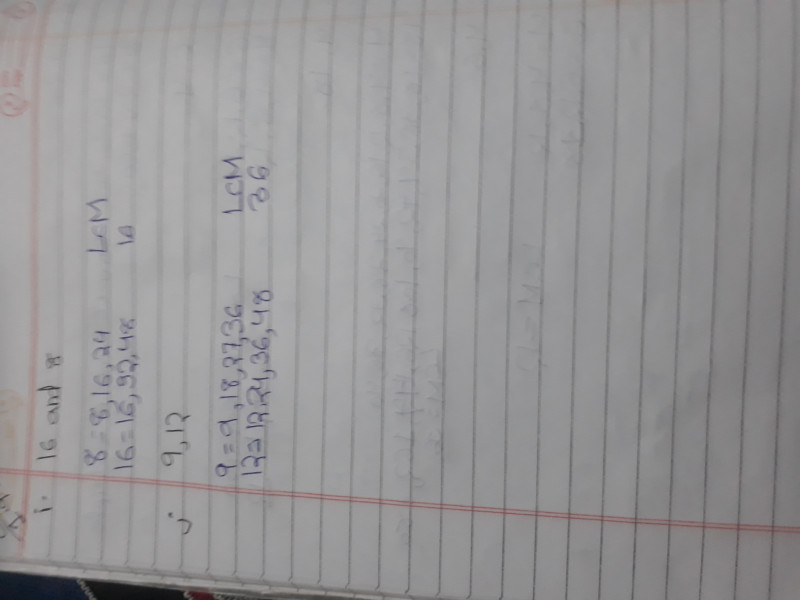 i. 16 and 8
8 = 8, 16, 24 LCM
16 = 16, 32, 48 16
j 9, 12
9 = 9, 18, 27, 36 LCM
12 = 12, 24, 36, 48 36